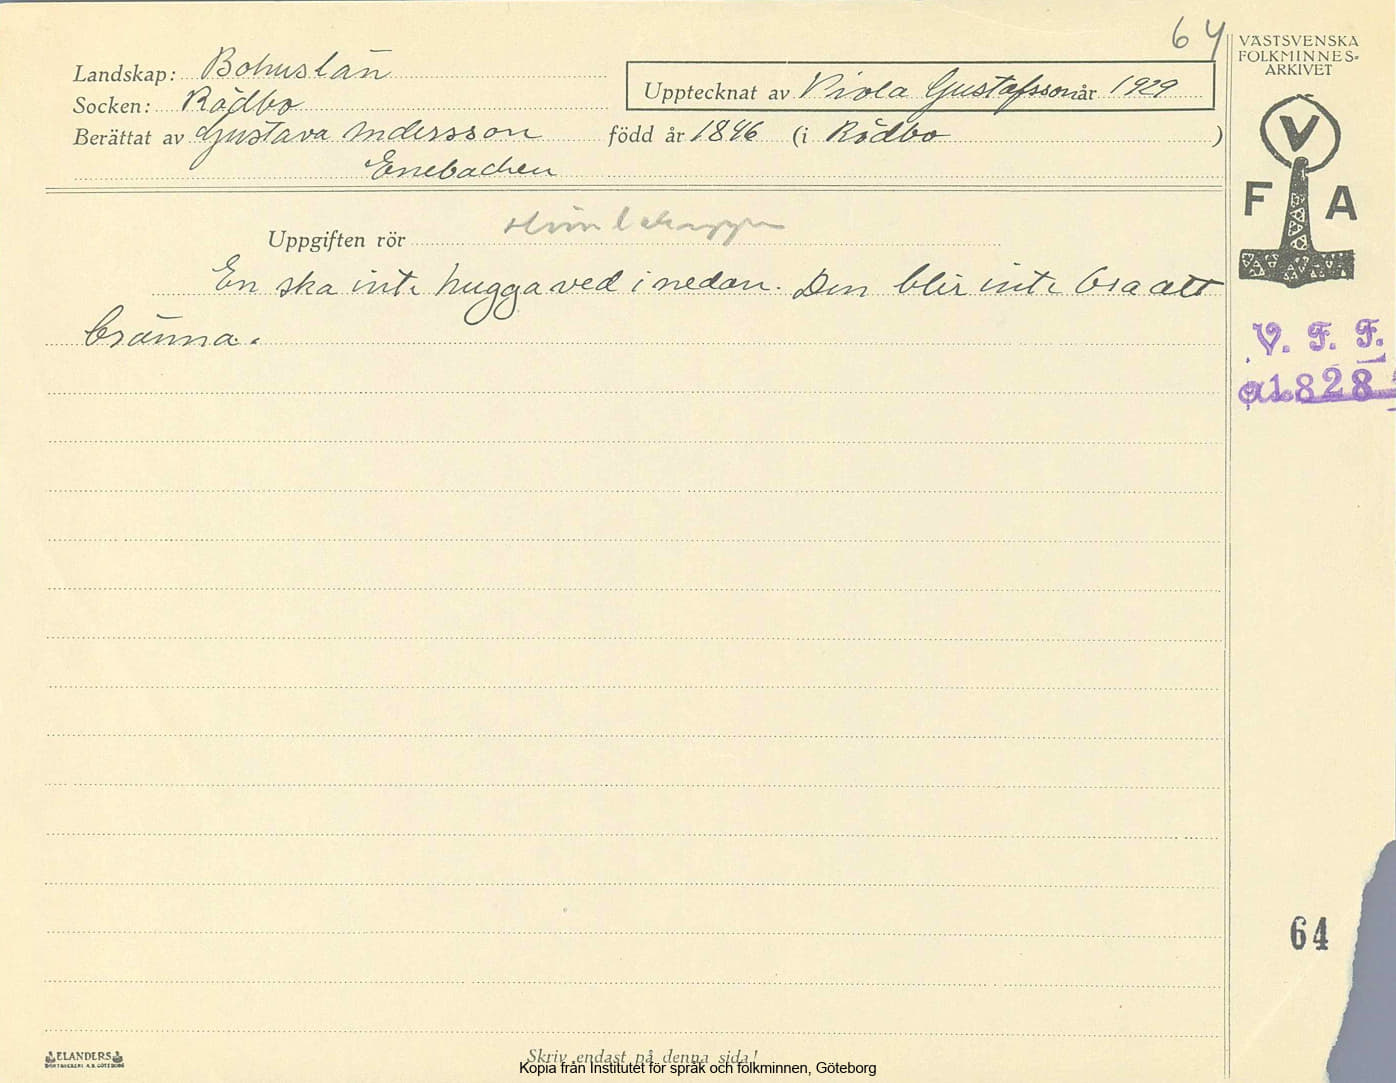 64
VÄSTSVENSKA
FOLKMINNES-
ARKIVET
Landskap: Bohuslän
Upptecknat av Viola Gustafsson år 1929
Socken: Rödbo
Berättat av Gustava Andersson född år 1846 (i Rödbo )
Enebacken
V
F A
Uppgiften rör
En ska inte hugga ved i nedan. Den blir inte bra att
bränna.
V. F. F.
1828
64
ELANDERS
BOKTRYCKERI A.B. GÖTEBORG
Skriv endast på denna sida!
Kopia från Institutet för språk och folkminnen, Göteborg